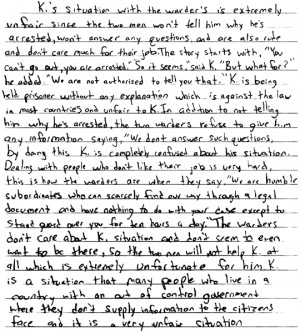 K.'s situation with the warder's is extremely
unfair since the two men won't tell him why he's
arrested, won't answer any questions, and are also rude
and don't care much for their job. The story starts with, "You
can't go out, you are arrested." "So it seems," said K. "But what for?"
he added. "We are not authorized to tell you that." K. is being
held prisoner without any explanation which is against the law
in most countries and unfair to K. In addition to not telling
him why he's arrested, the two warders refuse to give him
any information saying, "We don't answer such questions,
by doing this K. is completely confused about his situation.
Dealing with people who don't like their job is very hard,
this is how the warders are when they say, "We are humble
subordinates who can scarcely find our way through a legal
document and have nothing to do with your case except to
stand guard over you for ten hours a day." The warders
don't care about K. situation and don't seem to even
want to be there, so the two men will not help K. at
all which is extremely unfortunate for him. K.
is a situation that many people who live in a
country with an out of control government
where they don't supply information to the citizens
face and it is a very unfair situation